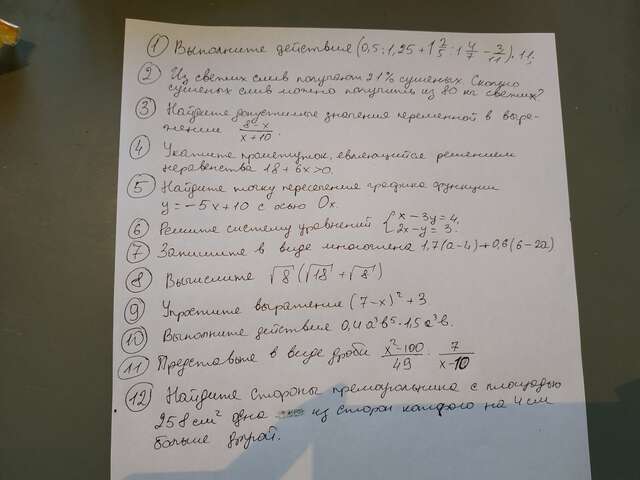 ① Выполните действия (0,5 : 1,25 + 1 2/5 : 1 4/7 - 3/11) · 11.
② Из свежих слив получают 21% сушёных. Сколько
сушёных слив можно получить из 80 кг свежих?
③ Найдите допустимые значения переменной в выра-
жении 8-x/x+10.
④ Укажите промежуток, являющийся решением
неравенства 18 + 6x > 0.
⑤ Найдите точку пересечения графика функции
y = -5x + 10 с осью Ox.
⑥ Решите систему уравнений { x - 3y = 4, 2x - y = 3.
⑦ Запишите в виде многочлена 1,7(a-4)+0,6(6-2a)
⑧ Вычислите √8 (√18 + √8)
⑨ Упростите выражение (7-x)² + 3
⑩ Выполните действие 0,4a³b⁵ · 1,5a³b.
⑪ Представьте в виде дроби x²-100/49 · 7/x-10
⑫ Найдите стороны прямоугольника с площадью
258 см² одна из сторон которого на 4 см
больше другой.